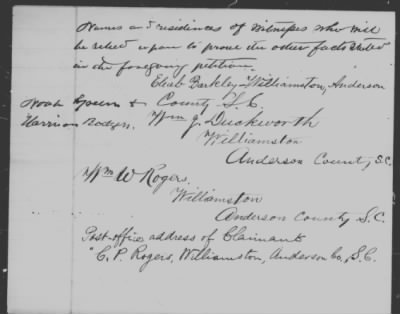 Names and residences of witnesses who will
be relied upon to prove the other facts stated
in the foregoing petition.
Elias Barkley - Williamston, Anderson
Noah & County S.C.
Harrison Rodgers. Wm J. Duckworth
Williamston
Anderson County, S.C.
Wm W Rogers.
Williamston
Anderson County S.C.
Post-office address of Claimant
C. P. Rogers, Williamston, Anderson Co, S.C.